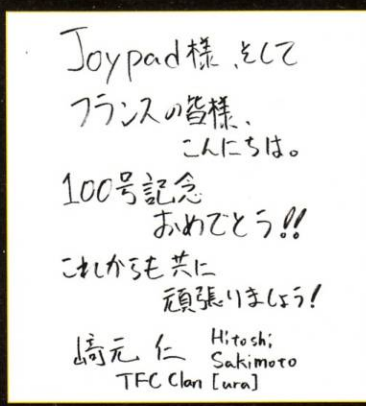 Joypad様、そして
フランスの皆様、
こんにちは。
100号記念
おめでとう!!
これからも共に
頑張りましょう!
崎元 仁 Hitoshi Sakimoto
TFC Clan [ura]